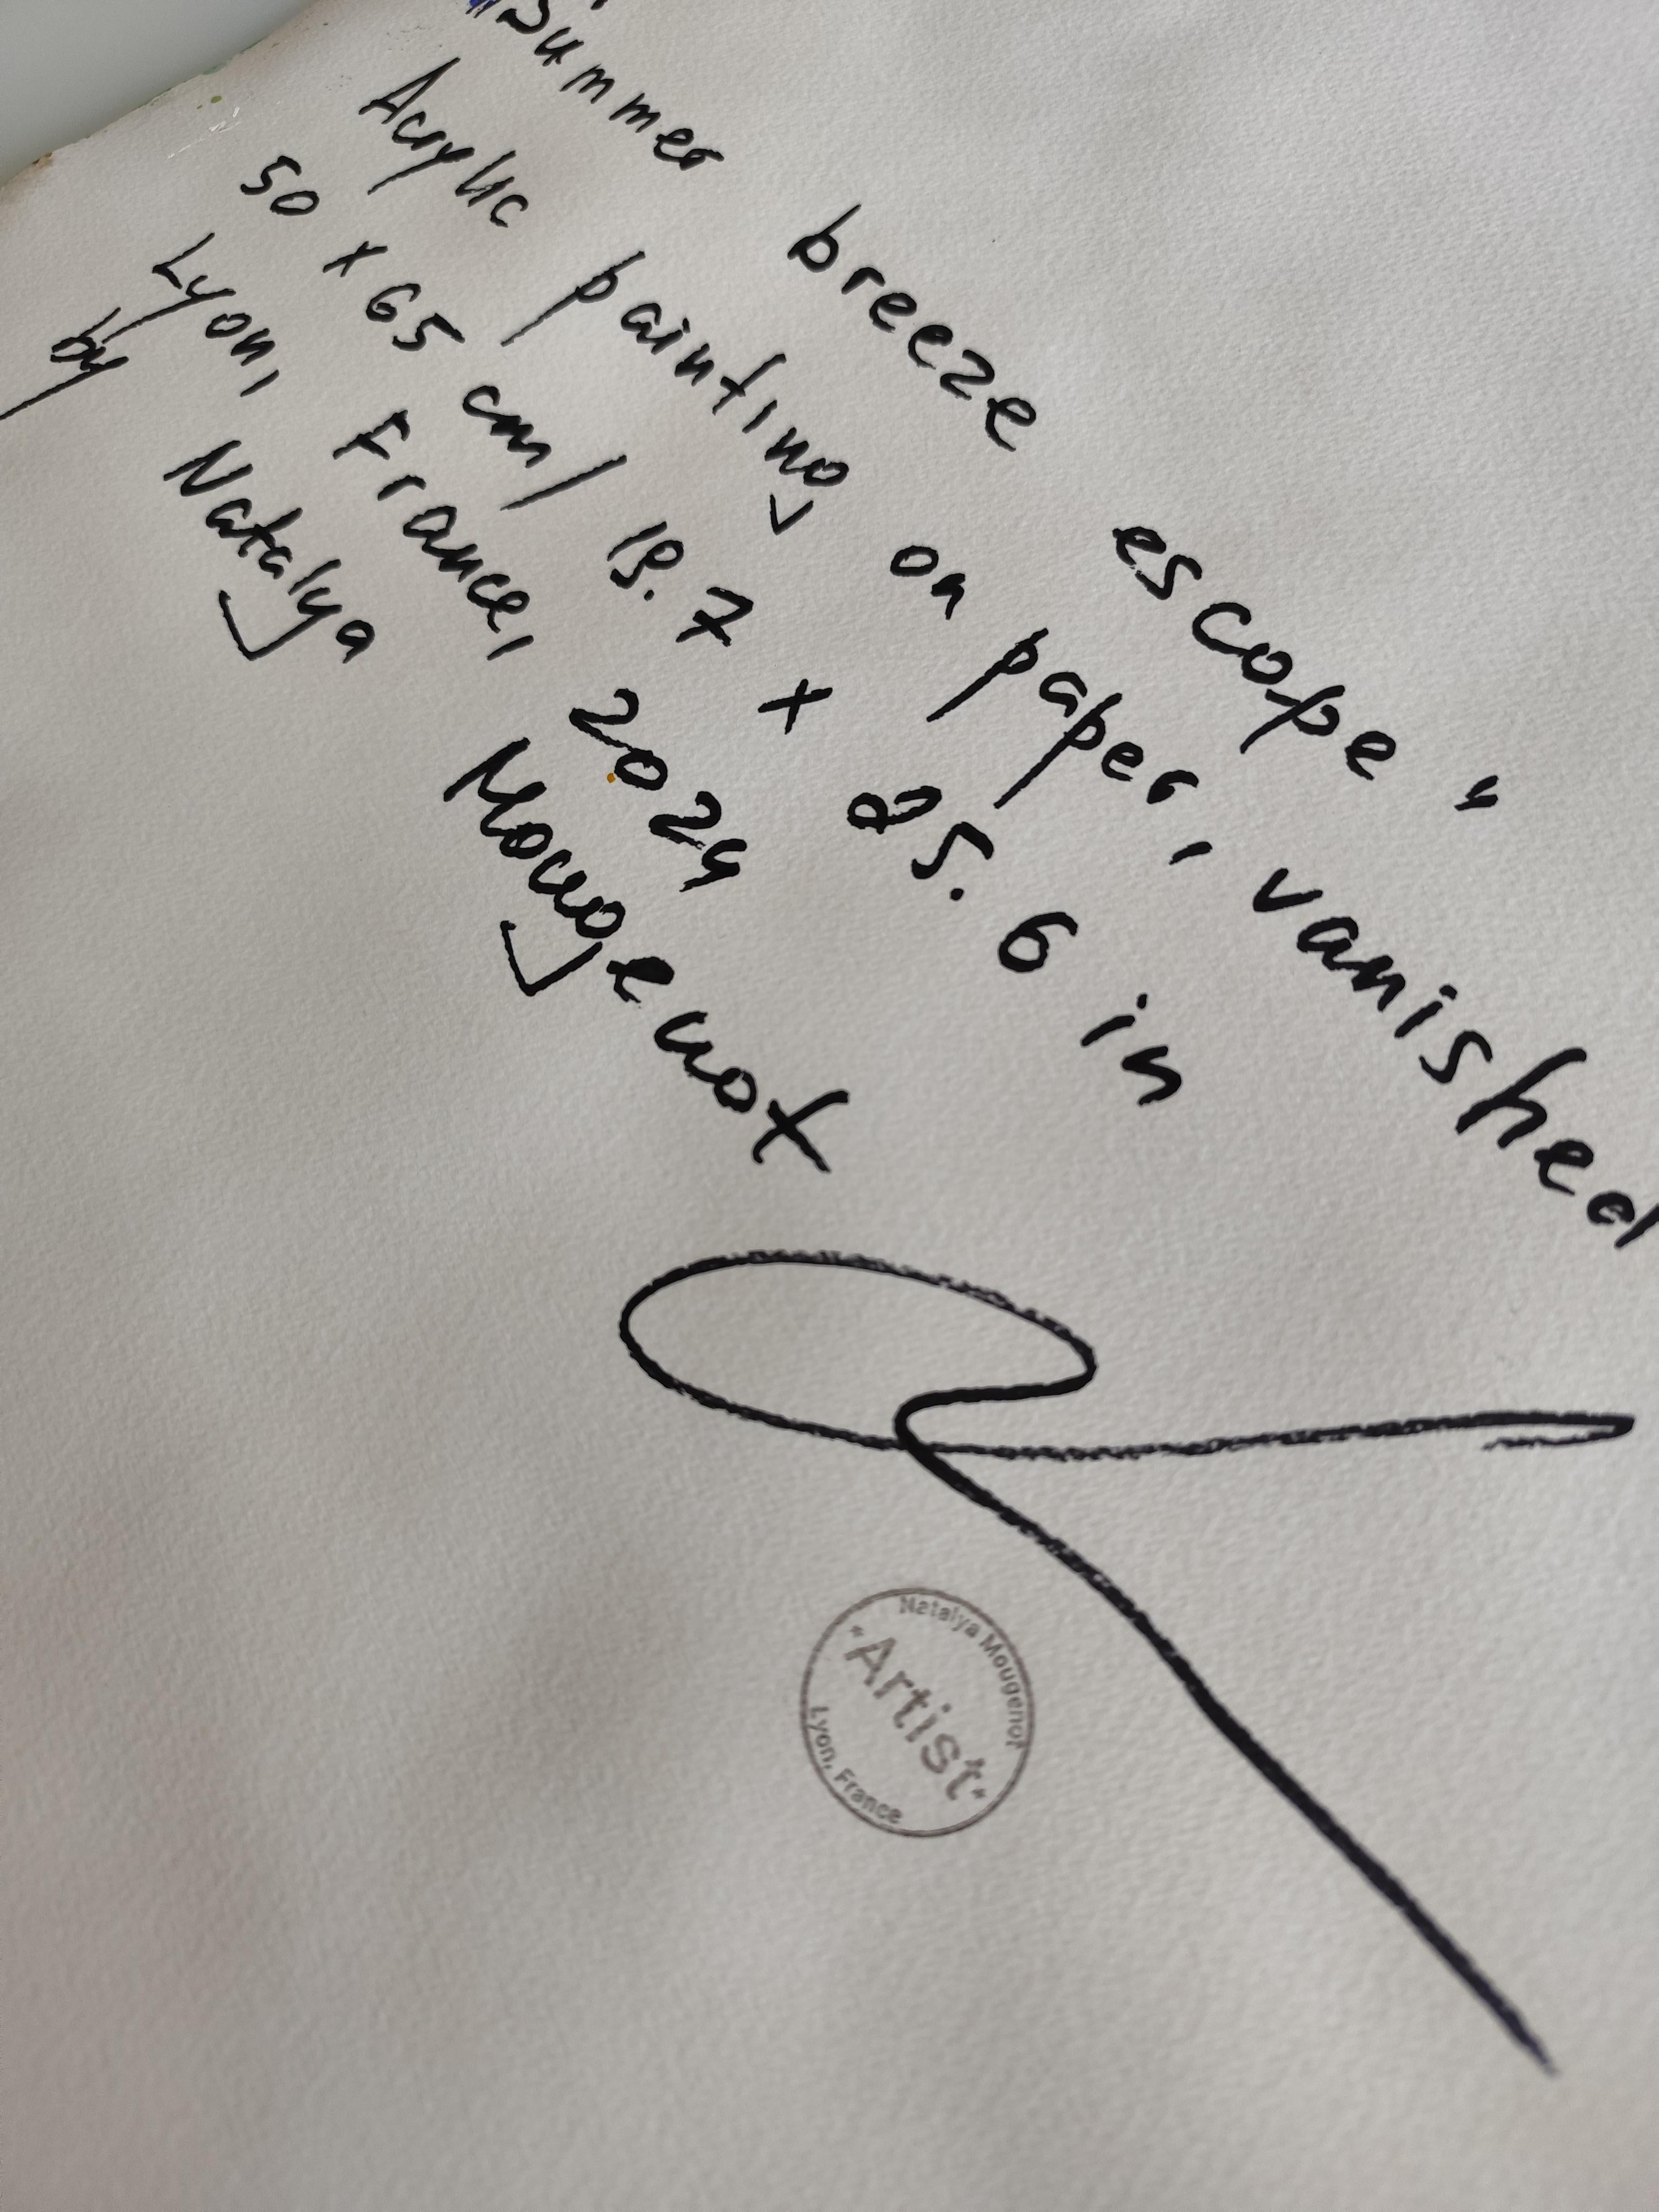 "Summer breeze escape"
Acrylic painting on paper, vanished
50 x 65 cm / 19.7 x 25.6 in
Lyon, France, 2024
by Natalya Mougenot
Natalya Mougenot
"Artist"
Lyon, France